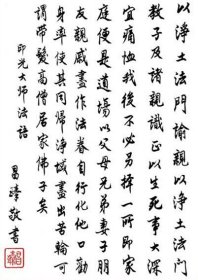 以淨土法門諭親以淨土法門
教子及諸親識正以生死事大深
宜痛恤我後不必另擇一所即家
庭便是道場以父母兄弟妻子朋
友親戚盡作法眷自行化他口勸
身率使其同歸淨域盡出苦輪可
謂帶髮高僧居家佛子矣
印光大师法語
昌曄敬書